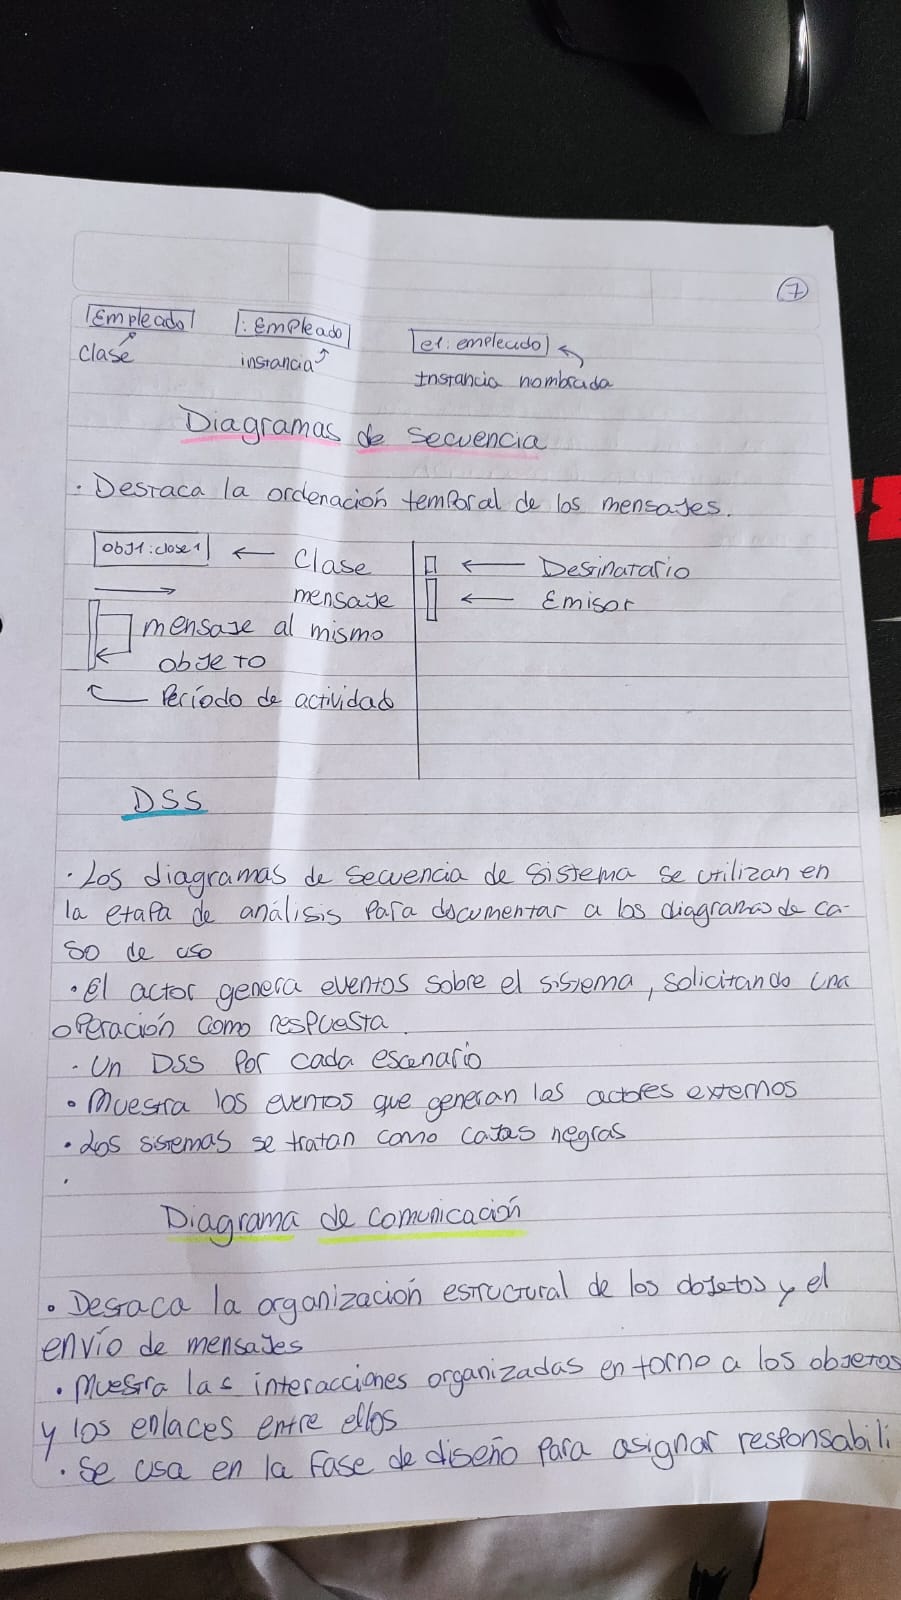 7
Empleado :Empleado e1:empleado
Clase instancia Instancia nombrada
Diagramas de secuencia
· Destaca la ordenación temporal de los mensajes.
obj1:clase1 ← Clase ← Desinatario
→ mensaje ← Emisor
mensaje al mismo
objeto
Período de actividad
DSS
· Los diagramas de secuencia de sistema se utilizan en
la etapa de análisis para documentar a los diagramas de ca-
so de uso
· el actor genera eventos sobre el sistema, solicitando una
operación como respuesta.
· Un DSS por cada escenario
· Muestra los eventos que generan los actores externos
· Los sistemas se tratan como cajas negras
·
Diagrama de comunicación
· Destaca la organización estructural de los objetos y el
envío de mensajes
· Muestra las interacciones organizadas en torno a los objetos
y los enlaces entre ellos
· Se usa en la fase de diseño para asignar responsabili